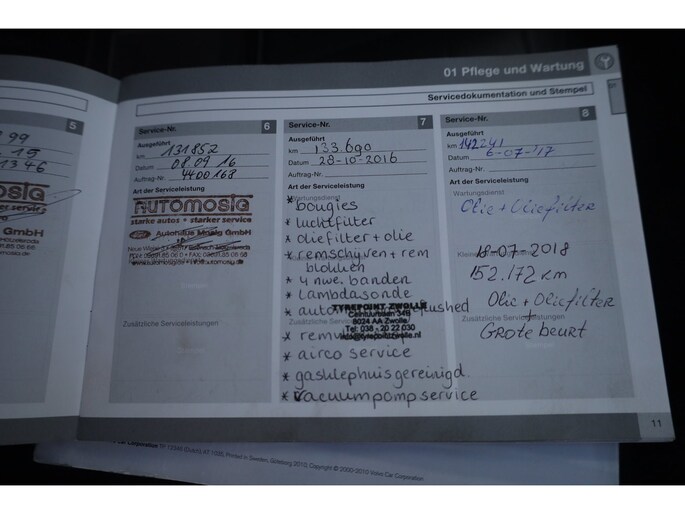 01 Pflege und Wartung
Servicedokumentation und Stempel
5
99
15
1346
GmbH
Service-Nr. 6
Ausgeführt
km 131852
Datum 08.09 16
Auftrag-Nr. 4400168
Art der Serviceleistung
AUTOMOSIG
starke autos • starker service
Autohaus Mosig GmbH
Zusätzliche Serviceleistungen
Service-Nr. 7
Ausgeführt
km 133.690
Datum 28-10-2016
Auftrag-Nr.
Art der Serviceleistung
Wartungsdienst
* bougies
* luchtfilter
* oliefilter + olie
* remschijven + rem
blokken
* 4 nwe. banden
* lambdasonde
TYREPOINT ZWOLLE
Ceintuurbaan
8024 AA Zwolle
Tel: 038 - 20 22 030
* airco service
* gasklephuis gereinigd.
* Vacuumpomp service
Service-Nr. 8
Ausgeführt
km 142241
Datum 6-07-'17
Auftrag-Nr.
Art der Serviceleistung
Wartungsdienst
Olie + Oliefilter
18-07-2018
152.172 km
Olie + Oliefilter
+
Zusätzliche Serviceleistungen
Grote beurt
11